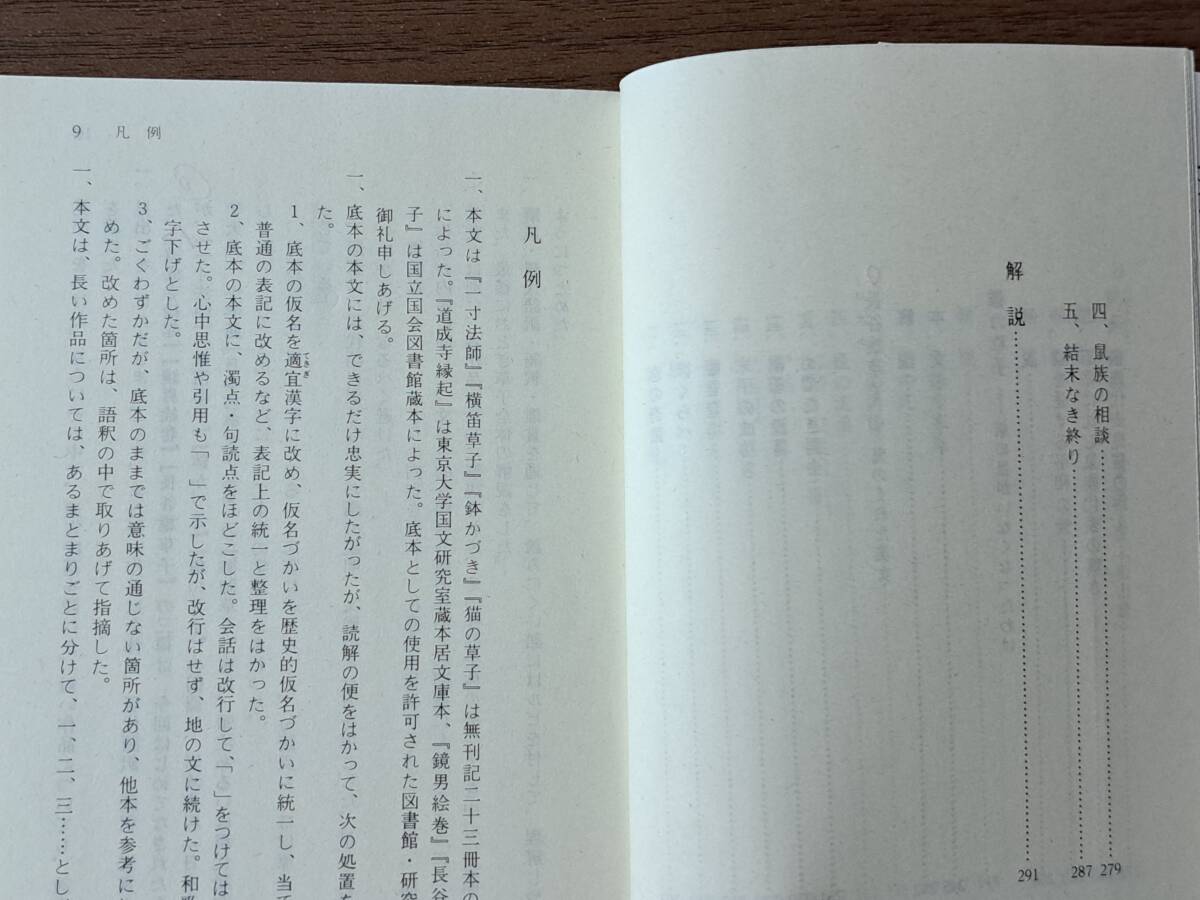 四、鼠族の相談……………………279
五、結末なき終り……………………287
解説……………………291
9 凡例
凡例
一、本文は『一寸法師』『横笛草子』『鉢かづき』『猫の草子』は無刊記二十三冊本の
によった。『道成寺縁起』は東京大学国文研究室蔵本居文庫本、『鏡男絵巻』『長谷
子』は国立国会図書館蔵本によった。底本としての使用を許可された図書館・研究
御礼申しあげる。
一、底本の本文には、できるだけ忠実にしたがったが、読解の便をはかって、次の処置
た。
1、底本の仮名を適宜てきぎ漢字に改め、仮名づかいを歴史的仮名づかいに統一し、当て
普通の表記に改めるなど、表記上の統一と整理をはかった。
2、底本の本文に、濁点・句読点をほどこした。会話は改行して、「」をつけては
させた。心中思惟や引用も「」で示したが、改行はせず、地の文に続けた。和
字下げとした。
3、ごくわずかだが、底本のままでは意味の通じない箇所があり、他本を参考に
めた。改めた箇所は、語釈の中で取りあげて指摘した。
一、本文は、長い作品については、あるまとまりごとに分けて、一、二、三……とし